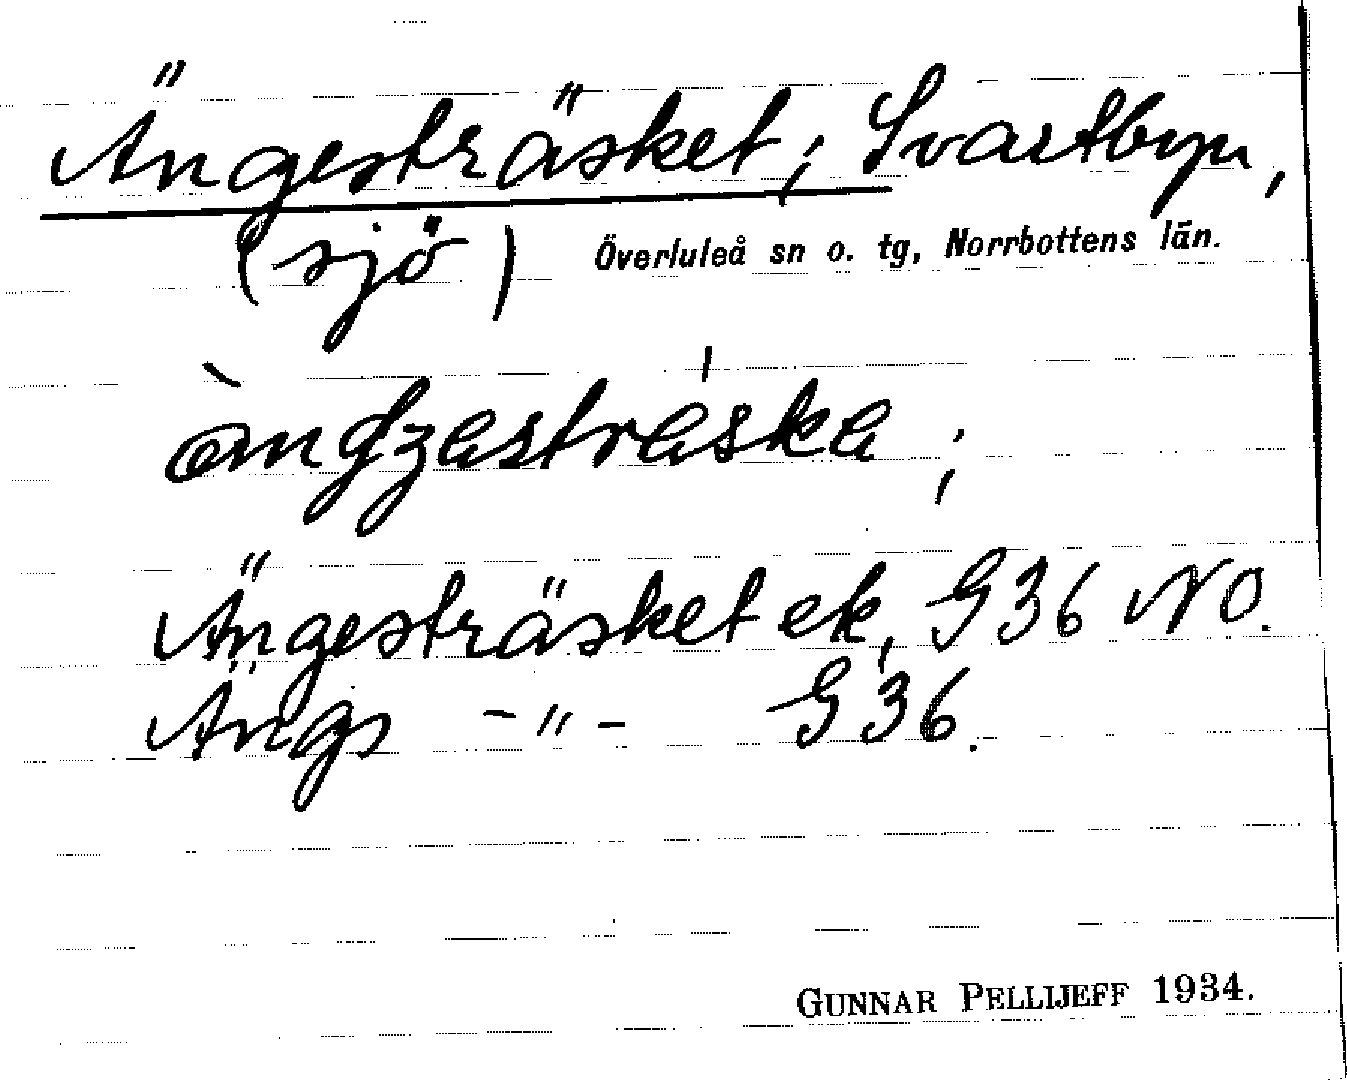 Ängesträsket; Svartbyn,
(sjö) Överluleå sn o. tg, Norrbottens län.
Ängesträsket ek, G36 NO.
Ängs -"- G36.
GUNNAR PELLIJEFF 1934.